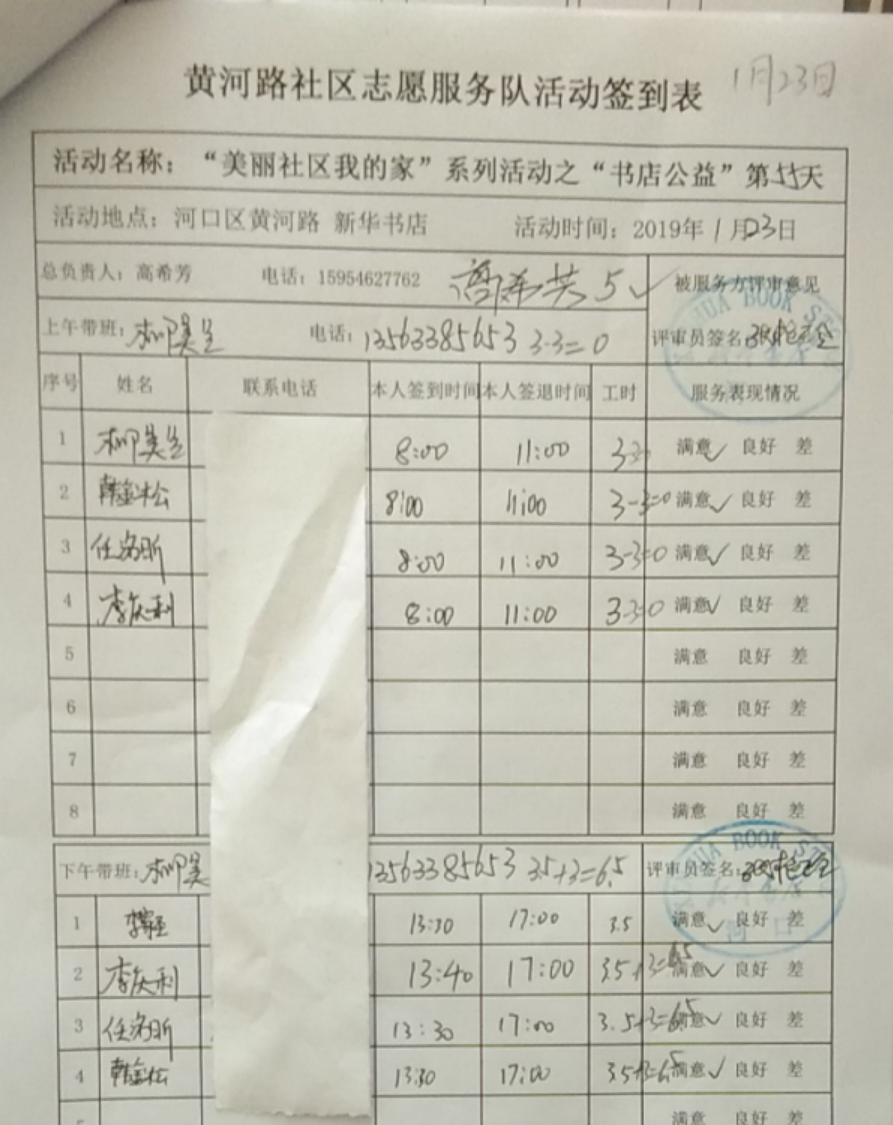 黄河路社区志愿服务队活动签到表 1月23日
活动名称：“美丽社区我的家”系列活动之“书店公益”第55天
活动地点：河口区黄河路 新华书店 活动时间：2019年1月23日
总负责人：高希芳 电话：15954627762 高希芳 5 ✓ 被服务方评审意见
上午带班：柳美兰 电话：13563385653 3-3=0 评审员签名：
序号 姓名 联系电话 本人签到时间 本人签退时间 工时 服务表现情况
1 柳美兰 8:00 11:00 3-3=0 满意✓ 良好 差
2 韩金松 8:00 11:00 3-3=0 满意✓ 良好 差
3 任洛昕 8:00 11:00 3-3=0 满意✓ 良好 差
4 李庆利 8:00 11:00 3-3=0 满意✓ 良好 差
5 满意 良好 差
6 满意 良好 差
7 满意 良好 差
8 满意 良好 差
下午带班：柳美 13563385653 3.5+3=6.5 评审员签名：
1 13:30 17:00 3.5 满意✓ 良好 差
2 李庆利 13:40 17:00 3.5+3=6.5 满意✓ 良好 差
3 任洛昕 13:30 17:00 3.5+3=6.5 满意✓ 良好 差
4 韩金松 13:30 17:00 3.5+3=6.5 满意✓ 良好 差
满意 良好 差